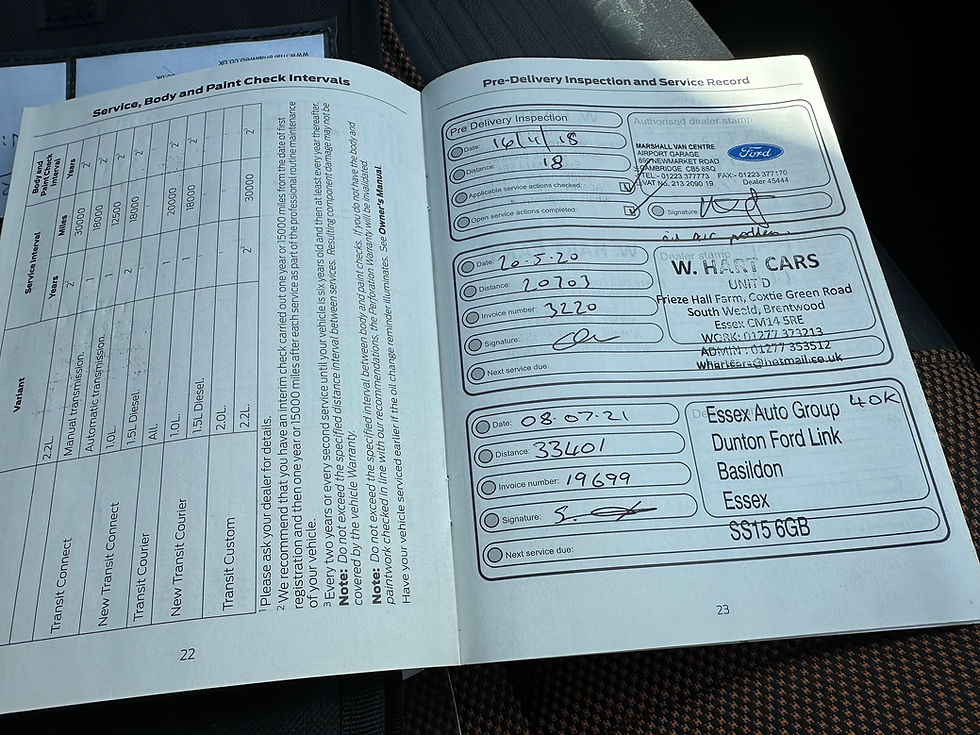 www.marshallweb.co.uk
Service, Body and Paint Check Intervals
Variant
Service Interval
Body and Paint Check Interval
Years
Miles
Years
Transit Connect
2.2L.
2²
30000
2²
Manual transmission.
18000
2²
Automatic transmission.
12500
2²
New Transit Connect
1.0L.
18000
2²
1.5L Diesel.
2
Transit Courier
All.
1
20000
2²
New Transit Courier
1.0L.
1
18000
2²
1.5L Diesel.
Transit Custom
2.0L.
2.2L.
2²
30000
2²
¹ Please ask your dealer for details.
² We recommend that you have an interim check carried out one year or 15000 miles from the date of first
registration and then one year or 15000 miles after each service as part of the professional routine maintenance
of your vehicle.
³ Every two years or every second service until your vehicle is six years old and then at least every year thereafter.
Note: Do not exceed the specified distance interval between services. Resulting component damage may not be
covered by the vehicle Warranty.
Note: Do not exceed the specified interval between body and paint checks. If you do not have the body and
paintwork checked in line with our recommendations, the Perforation Warranty will be invalidated.
Have your vehicle serviced earlier if the oil change reminder illuminates. See Owner's Manual.
22
Pre-Delivery Inspection and Service Record
Pre Delivery Inspection
Date: 16/4/18
Distance: 18
Applicable service actions checked:
Open service actions completed:
Authorised dealer stamp
MARSHALL VAN CENTRE
AIRPORT GARAGE
699 NEWMARKET ROAD
CAMBRIDGE CB5 8SQ
TEL:- 01223 377773 FAX:- 01223 377170
VAT No. 213 2090 19 Dealer 45444
Ford
Signature:
oil air pollen.
Date: 20.5.20
Distance: 20703
Invoice number: 3220
Signature:
Next service due:
Dealer stamp
W. HART CARS
UNIT D
Frieze Hall Farm, Coxtie Green Road
South Weald, Brentwood
Essex CM14 5RE
WORK: 01277 373213
ADMIN: 01277 353512
whartcars@hotmail.co.uk
Date: 08.07.21
Distance: 33401
Invoice number: 19699
Signature:
Next service due:
Essex Auto Group 40K
Dunton Ford Link
Basildon
Essex
SS15 6GB
23